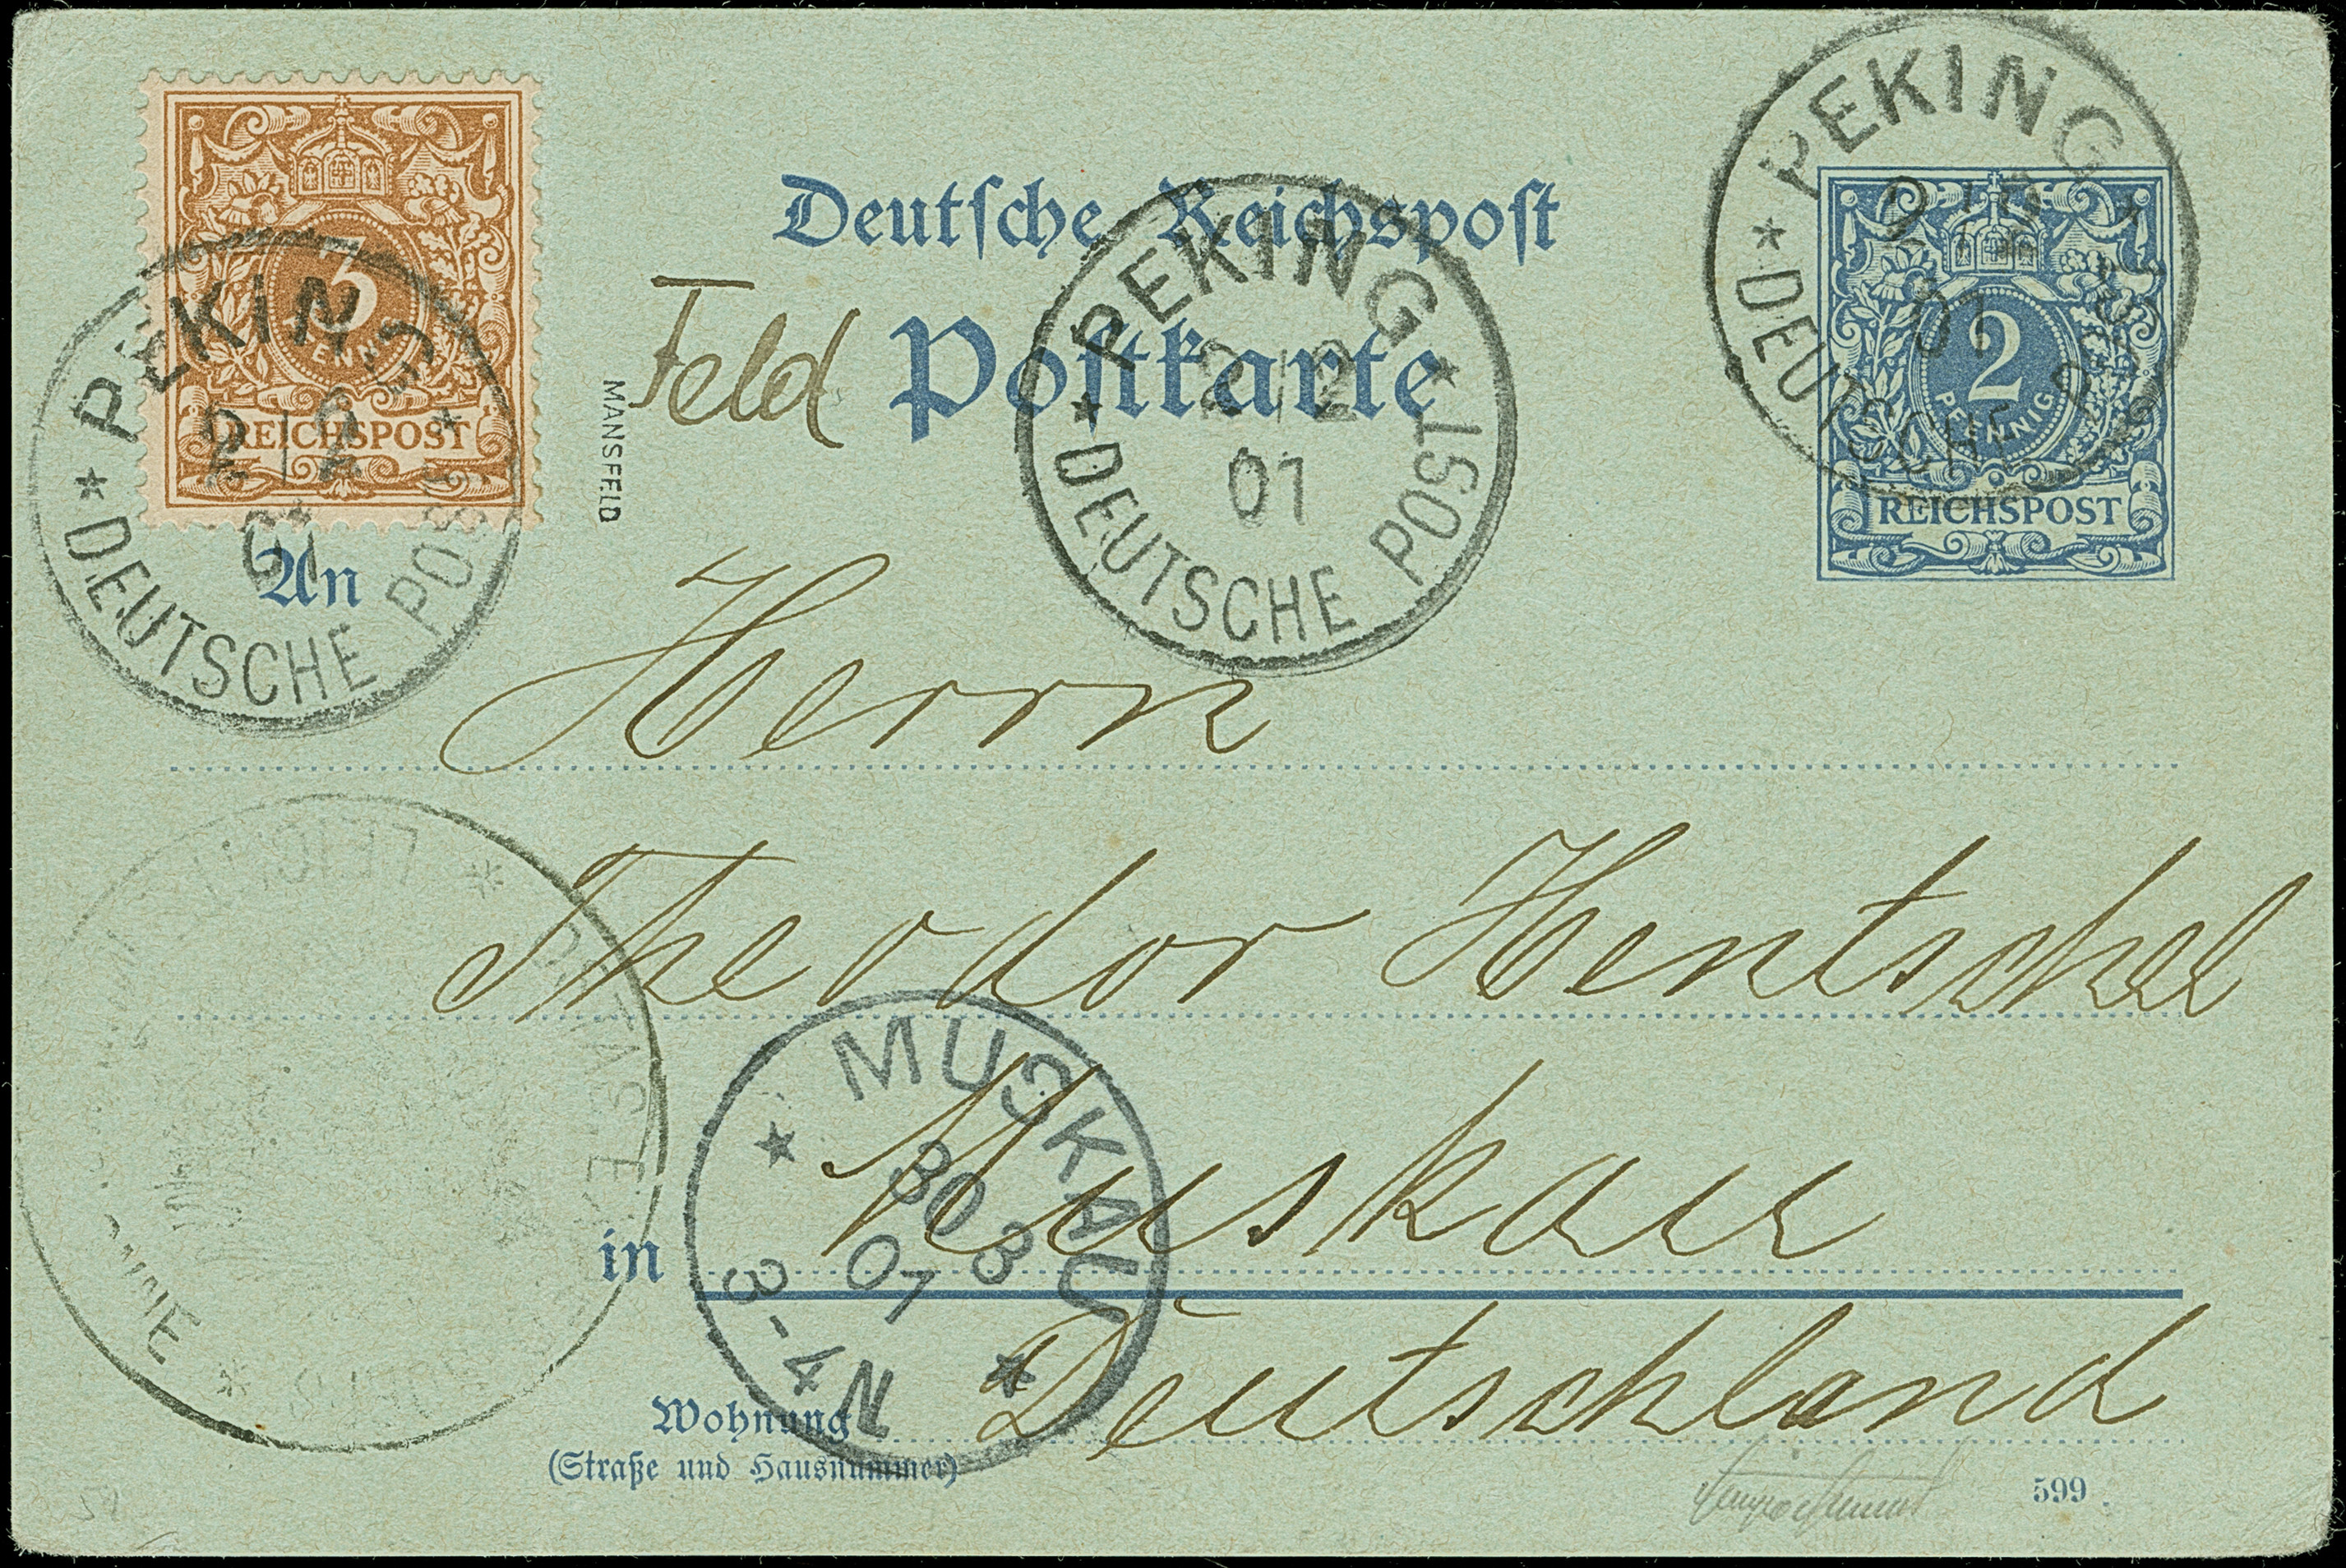 Deutsche Reichspost
Feld Postkarte
3
PFENNIG
REICHSPOST
2
PFENNIG
REICHSPOST
PEKING
2/2
01
DEUTSCHE POST
PEKING
2/2
01
DEUTSCHE POST
PEKING
2/2
01
DEUTSCHE POST
MANSFELD
An
Herrn
Theodor Hentschel
in Muskau
Deutschland
MUSKAU
30 3
01
3-4N
Wohnung
(Straße und Hausnummer)
599